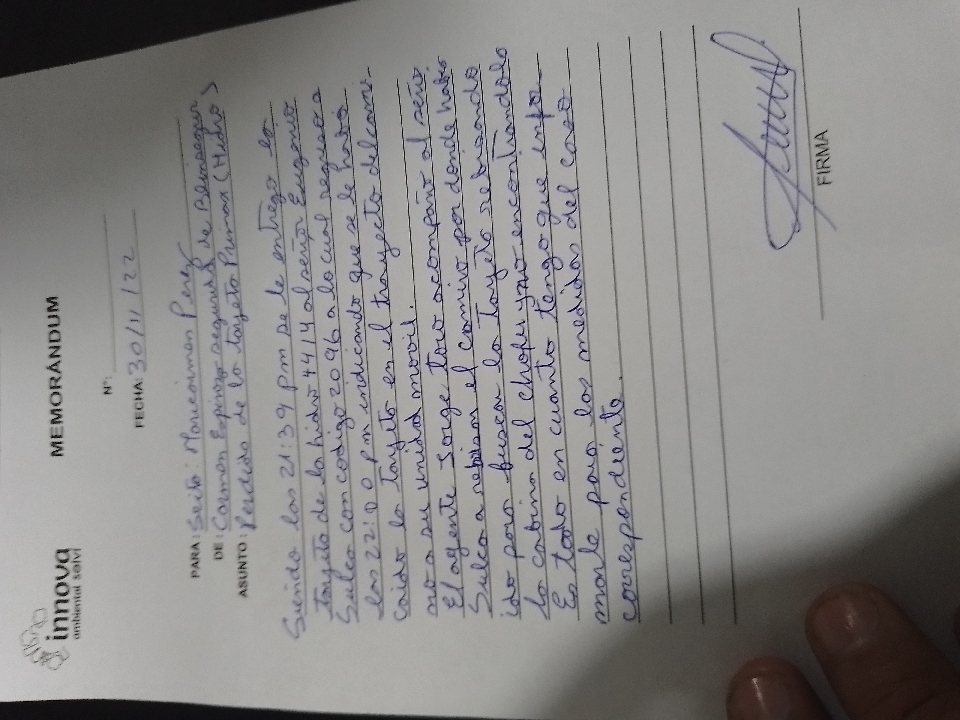 innova
ambiental solvi
MEMORÁNDUM
N°:
FECHA: 30/11/22
PARA: Seito: Maricarmen Perez
DE: Carmen Espinoza segurid. de Blindsegur
ASUNTO: Perdida de la tarjeta Primax (Hidro)
Siendo las 21:39 pm se le entrego la
tarjeta de la hidro 4414 al señor Eugenio
Sulca con codigo 2096 a lo cual regresa a
las 22:00 pm indicando que se le habia
caido la tarjeta en el trayecto del cami-
no a su unidad movil.
El agente Jorge, toro acompaño al señor
Sulca a revisar el camino por donde habia
ido para buscar la tarjeta rebisando
la cabina del chofer y no encontrandola
Es todo en cuanto tengo que infor-
marle para las medidas del caso
correspondiente.
FIRMA